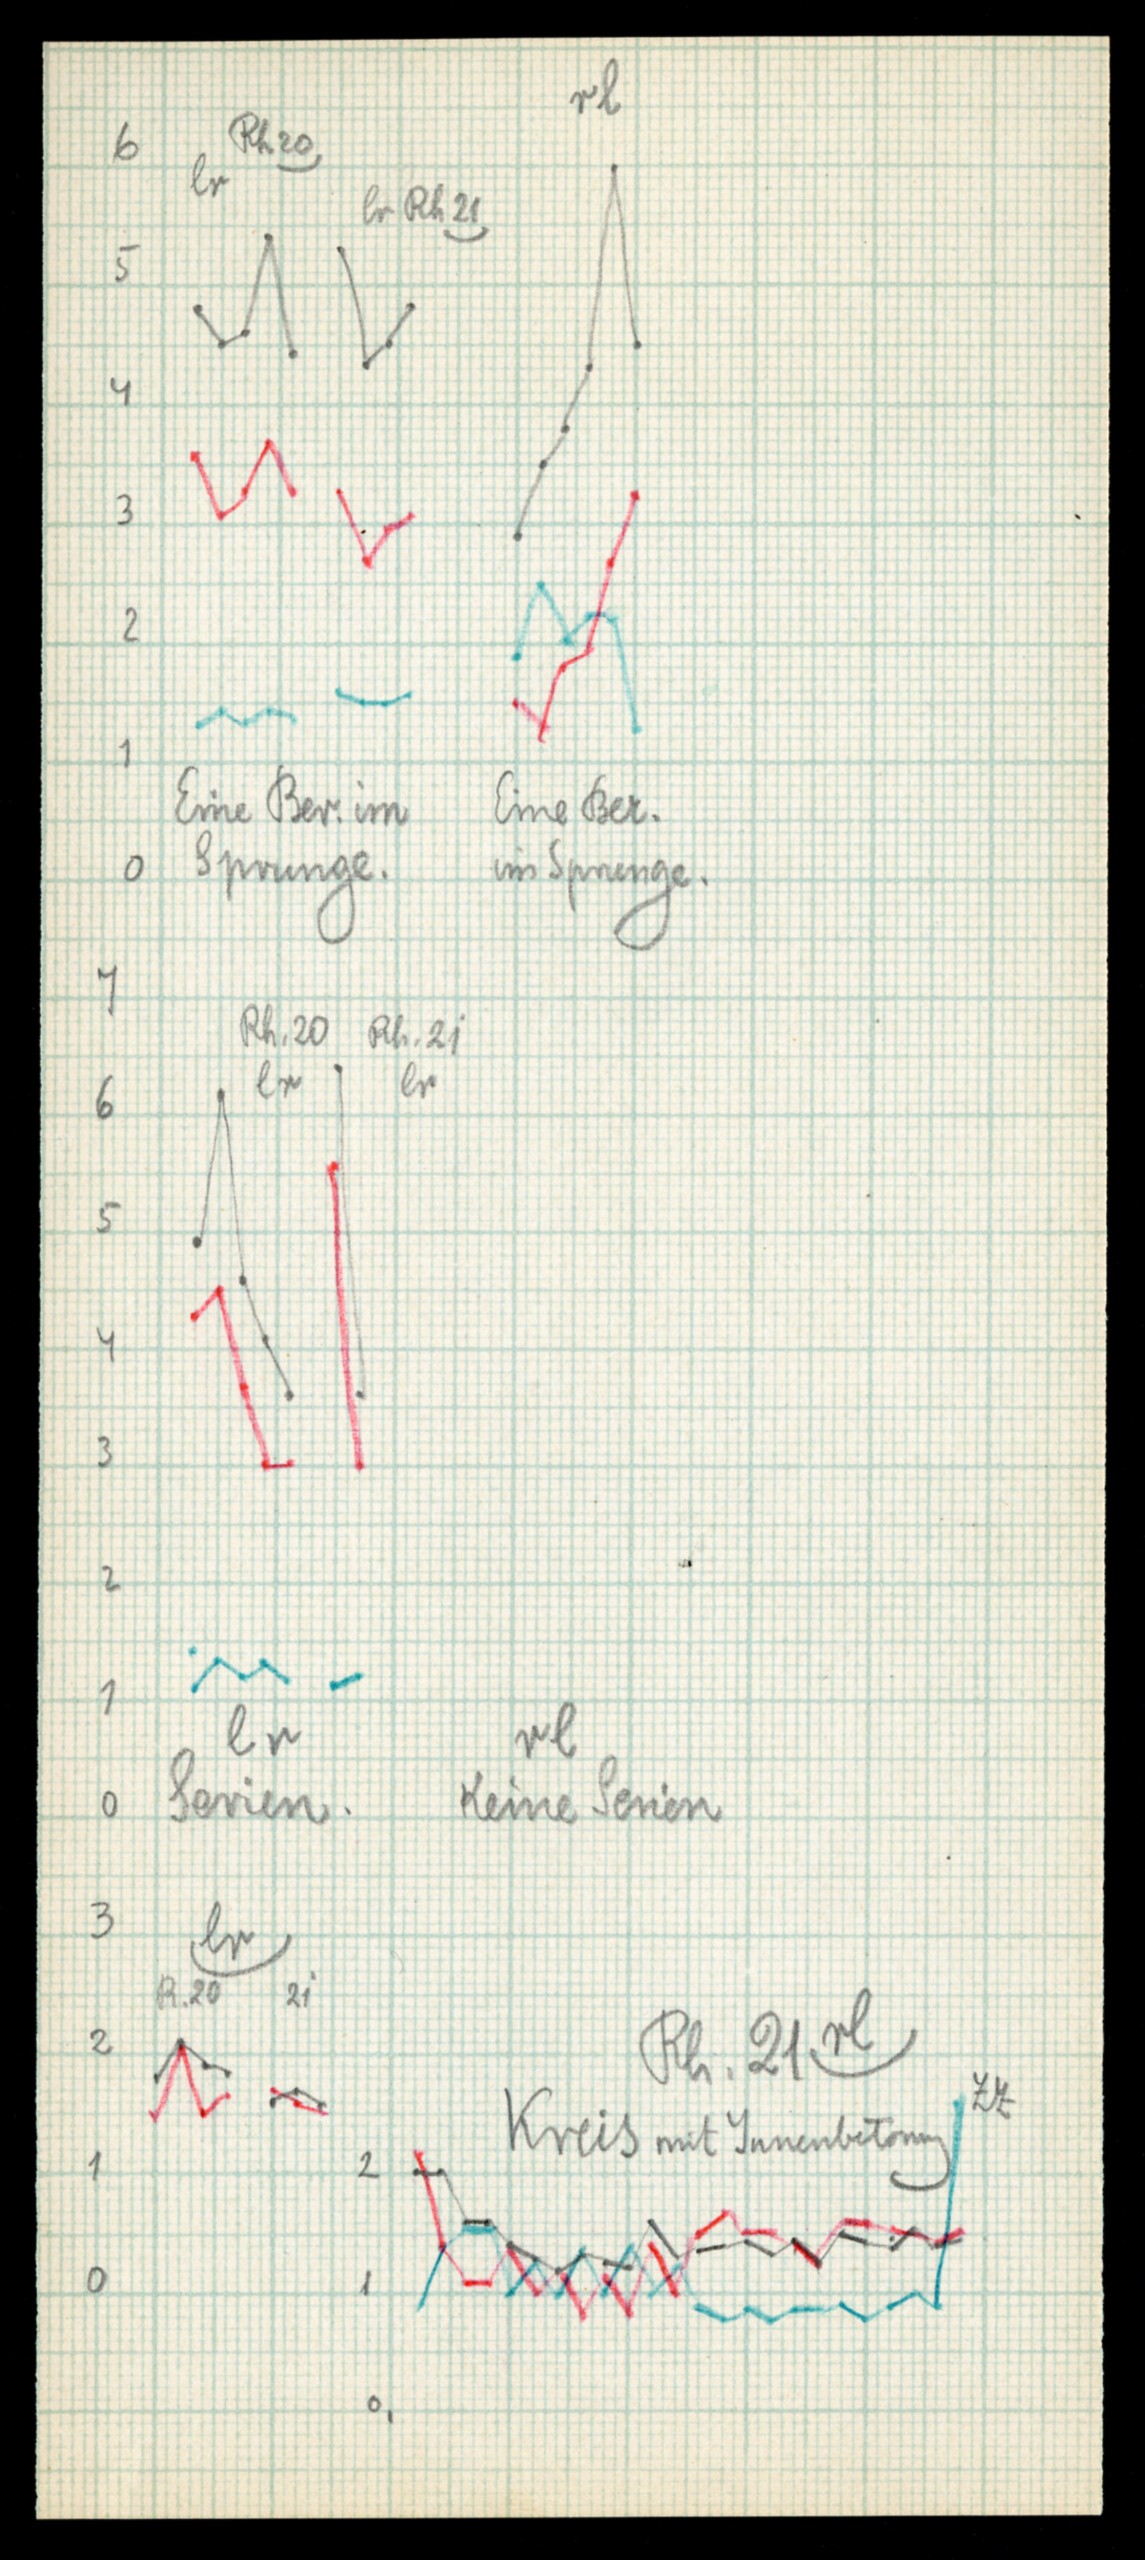 rl
6
Rh 20
lr
lr Rh 21
5
4
3
2
1
Eine Ber. im
Sprunge.
Eine Ber.
im Sprunge.
0
7
Rh. 20
lr
Rh. 21
lr
6
5
4
3
2
1
lr
Serien.
rl
Keine Serien
0
3
lr
R. 20
21
2
Rh. 21 rl
Kreis mit Innenbetonung
ZZ
1
2
0
1
0